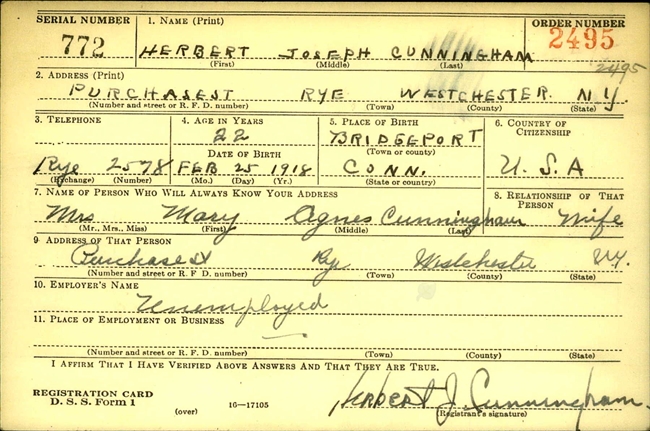 SERIAL NUMBER 1. NAME (Print) ORDER NUMBER
772 HERBERT JOSEPH CUNNINGHAM 2495
(First) (Middle) (Last)
2495
2. ADDRESS (Print)
PURCHASE ST RYE WESTCHESTER N Y
(Number and street or R. F. D. number) (Town) (County) (State)
3. TELEPHONE 4. AGE IN YEARS 5. PLACE OF BIRTH 6. COUNTRY OF CITIZENSHIP
22 BRIDGEPORT
DATE OF BIRTH (Town or county)
Rye 2578 FEB 25 1918 CONN. U. S. A
(Exchange) (Number) (Mo.) (Day) (Yr.) (State or country)
7. NAME OF PERSON WHO WILL ALWAYS KNOW YOUR ADDRESS 8. RELATIONSHIP OF THAT PERSON
Mrs Mary Agnes Cunningham Wife
(Mr., Mrs., Miss) (First) (Middle) (Last)
9 ADDRESS OF THAT PERSON
Purchase St Rye Westchester N.Y.
(Number and street or R. F. D. number) (Town) (County) (State)
10. EMPLOYER'S NAME
Unemployed
11. PLACE OF EMPLOYMENT OR BUSINESS
(Number and street or R. F. D. number) (Town) (County) (State)
I AFFIRM THAT I HAVE VERIFIED ABOVE ANSWERS AND THAT THEY ARE TRUE.
REGISTRATION CARD
D. S. S. Form 1 (over) 16—17105 Herbert J. Cunningham.
(Registrant's signature)